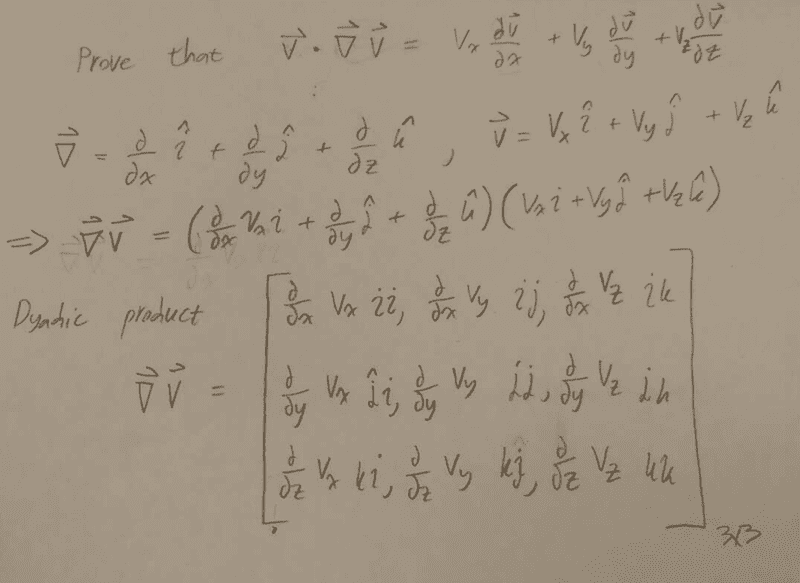 Prove that V⃗ · ∇⃗ V⃗ = Vx ∂V⃗/∂x + Vy ∂V⃗/∂y + Vz ∂V⃗/∂z
∇⃗ = ∂/∂x î + ∂/∂y ĵ + ∂/∂z k̂ , V⃗ = Vx î + Vy ĵ + Vz k̂
=> ∇⃗ V⃗ = (∂/∂x Vx i + ∂/∂y ĵ + ∂/∂z k̂)(Vx i + Vy ĵ + Vz k̂)
Dyadic product
∇⃗ V⃗ =
[ ∂/∂x Vx ii, ∂/∂x Vy ij, ∂/∂x Vz ik
∂/∂y Vx ĵi, ∂/∂y Vy jj, ∂/∂y Vz jk
∂/∂z Vx ki, ∂/∂z Vy kj, ∂/∂z Vz kk ]
3x3